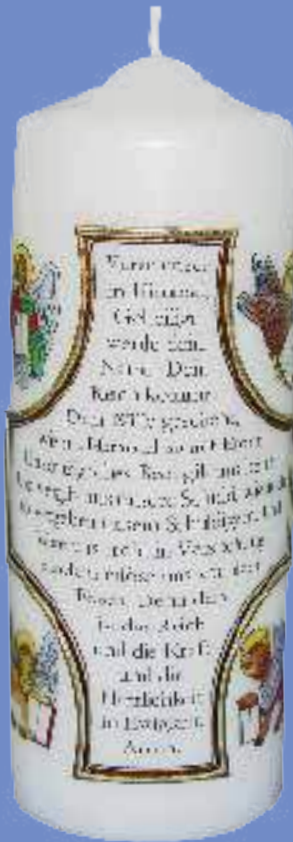 Vater unser
im Himmel,
Geheiligt
werde dein
Name. Dein
Reich komme.
Dein Wille geschehe,
wie im Himmel so auf Erden.
Unser tägliches Brot gib uns heute.
Und vergib uns unsere Schuld, wie auch
wir vergeben unsern Schuldigern. Und
führe uns nicht in Versuchung
sondern erlöse uns von dem
Bösen. Denn dein
ist das Reich
und die Kraft
und die
Herrlichkeit
in Ewigkeit.
Amen.